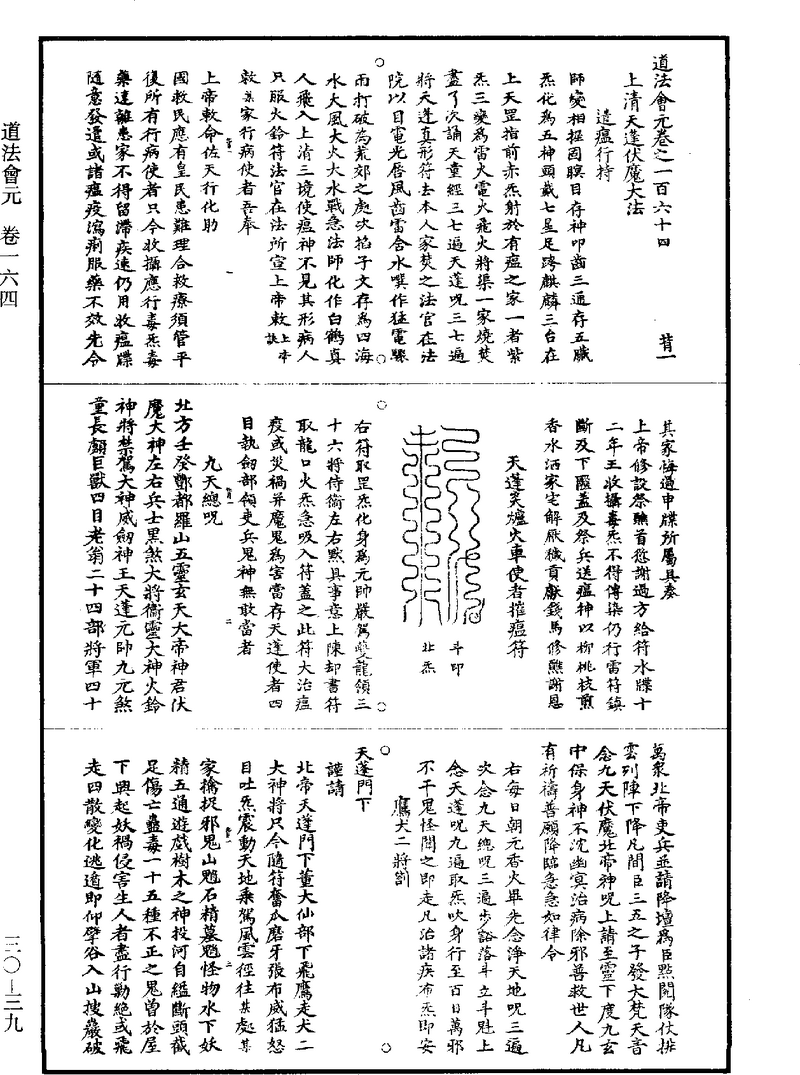 道法會元卷之一百六十四　背一
上清天蓬伏魔大法
遣瘟行持
師變相握固瞑目存神叩齒三通存五臟
炁化為五神頭戴七星足跨麒麟三台在
上天罡指前赤炁射於有瘟之家一者紫
炁三變為雷火電火飛火將渠一家燒焚
盡了次誦天童經三七遍天蓬呪三七遍
將天蓬直形符去本人家焚之法官在法
院以目電光唇風齒雷舍水噀作猛電驟
雨打破為荒郊之處次掐子文存為四海
水大風大火大水戰急法師化作白鶴真
人飛入上清三境使瘟神不見其形病人
只服火鈴符法官在法所宣上帝敕上本訣
敕某家行病使者吾奉
上帝敕命佐天行化助
國救民應有皇民患難理合救療須管平
復所有行病使者只今收攝應行毒炁毒
藥遠離患家不得留滯疾速仍用收瘟牒
隨意發遣或諸瘟疫瀉痢服藥不效先令
其家悔過申牒所屬具奏
上帝修設祭醮首愆謝過方給符水牒十
二年王收攝毒炁不得傳染仍行雷符鎮
斷及下匽蓋及祭兵送瘟神以柳桃枝煎
香水洒家宅解厭穢貢獻錢馬修醮謝恩
天蓬炎爐火車使者摧瘟符
斗印
北炁
右符取罡炁化身為元帥嚴駕雙龍領三
十六將侍衛左右默具事意上陳却書符
取龍口火炁急吸入符蓋之此符大治瘟
疫或災禍并魔鬼為害當存天蓬使者四
目執劒部領吏兵鬼神無敢當者
九天總呪
北方壬癸酆都羅山五靈玄天大帝神君伏
魔大神左右兵士黑煞大將衛靈大神火鈴
神將禁駕大神威劒神王天蓬元帥九元煞
童長顱巨獸四目老翁二十四部將軍四十
萬眾北帝吏兵並請降壇為臣點閱隊仗排
雲列陣下降凡間臣三五之子發大梵天音
念九天伏魔北帝神呪上請至靈下度九玄
中保身神不沈幽冥治病除邪善救世人凡
有祈禱普願降臨急急如律令
右每日朝元香火畢先念淨天地呪三遍
次念九天總呪三遍步豁落斗立斗魁上
念天蓬呪九遍取炁吹身行至百日萬邪
不干鬼怪聞之即走凡治諸疾布炁即安
鷹犬二將劄
天蓬門下
謹請
北帝天蓬門下董大仙部下飛鷹走犬二
大神將只今隨符奮爪磨牙張布威猛怒
目吐炁震動天地乘駕風雲徑往某處某
家擒捉邪鬼山魈石精墓魈怪物水下妖
精五通遊戲樹木之神投河自縊斷頭截
足傷亡蠱毒一十五種不正之鬼曾於屋
下興起妖禍侵害生人者盡行勦絕或飛
走四散變化逃遁即仰擘谷入山搜巖破
道法會元　卷一六四
三〇－三九